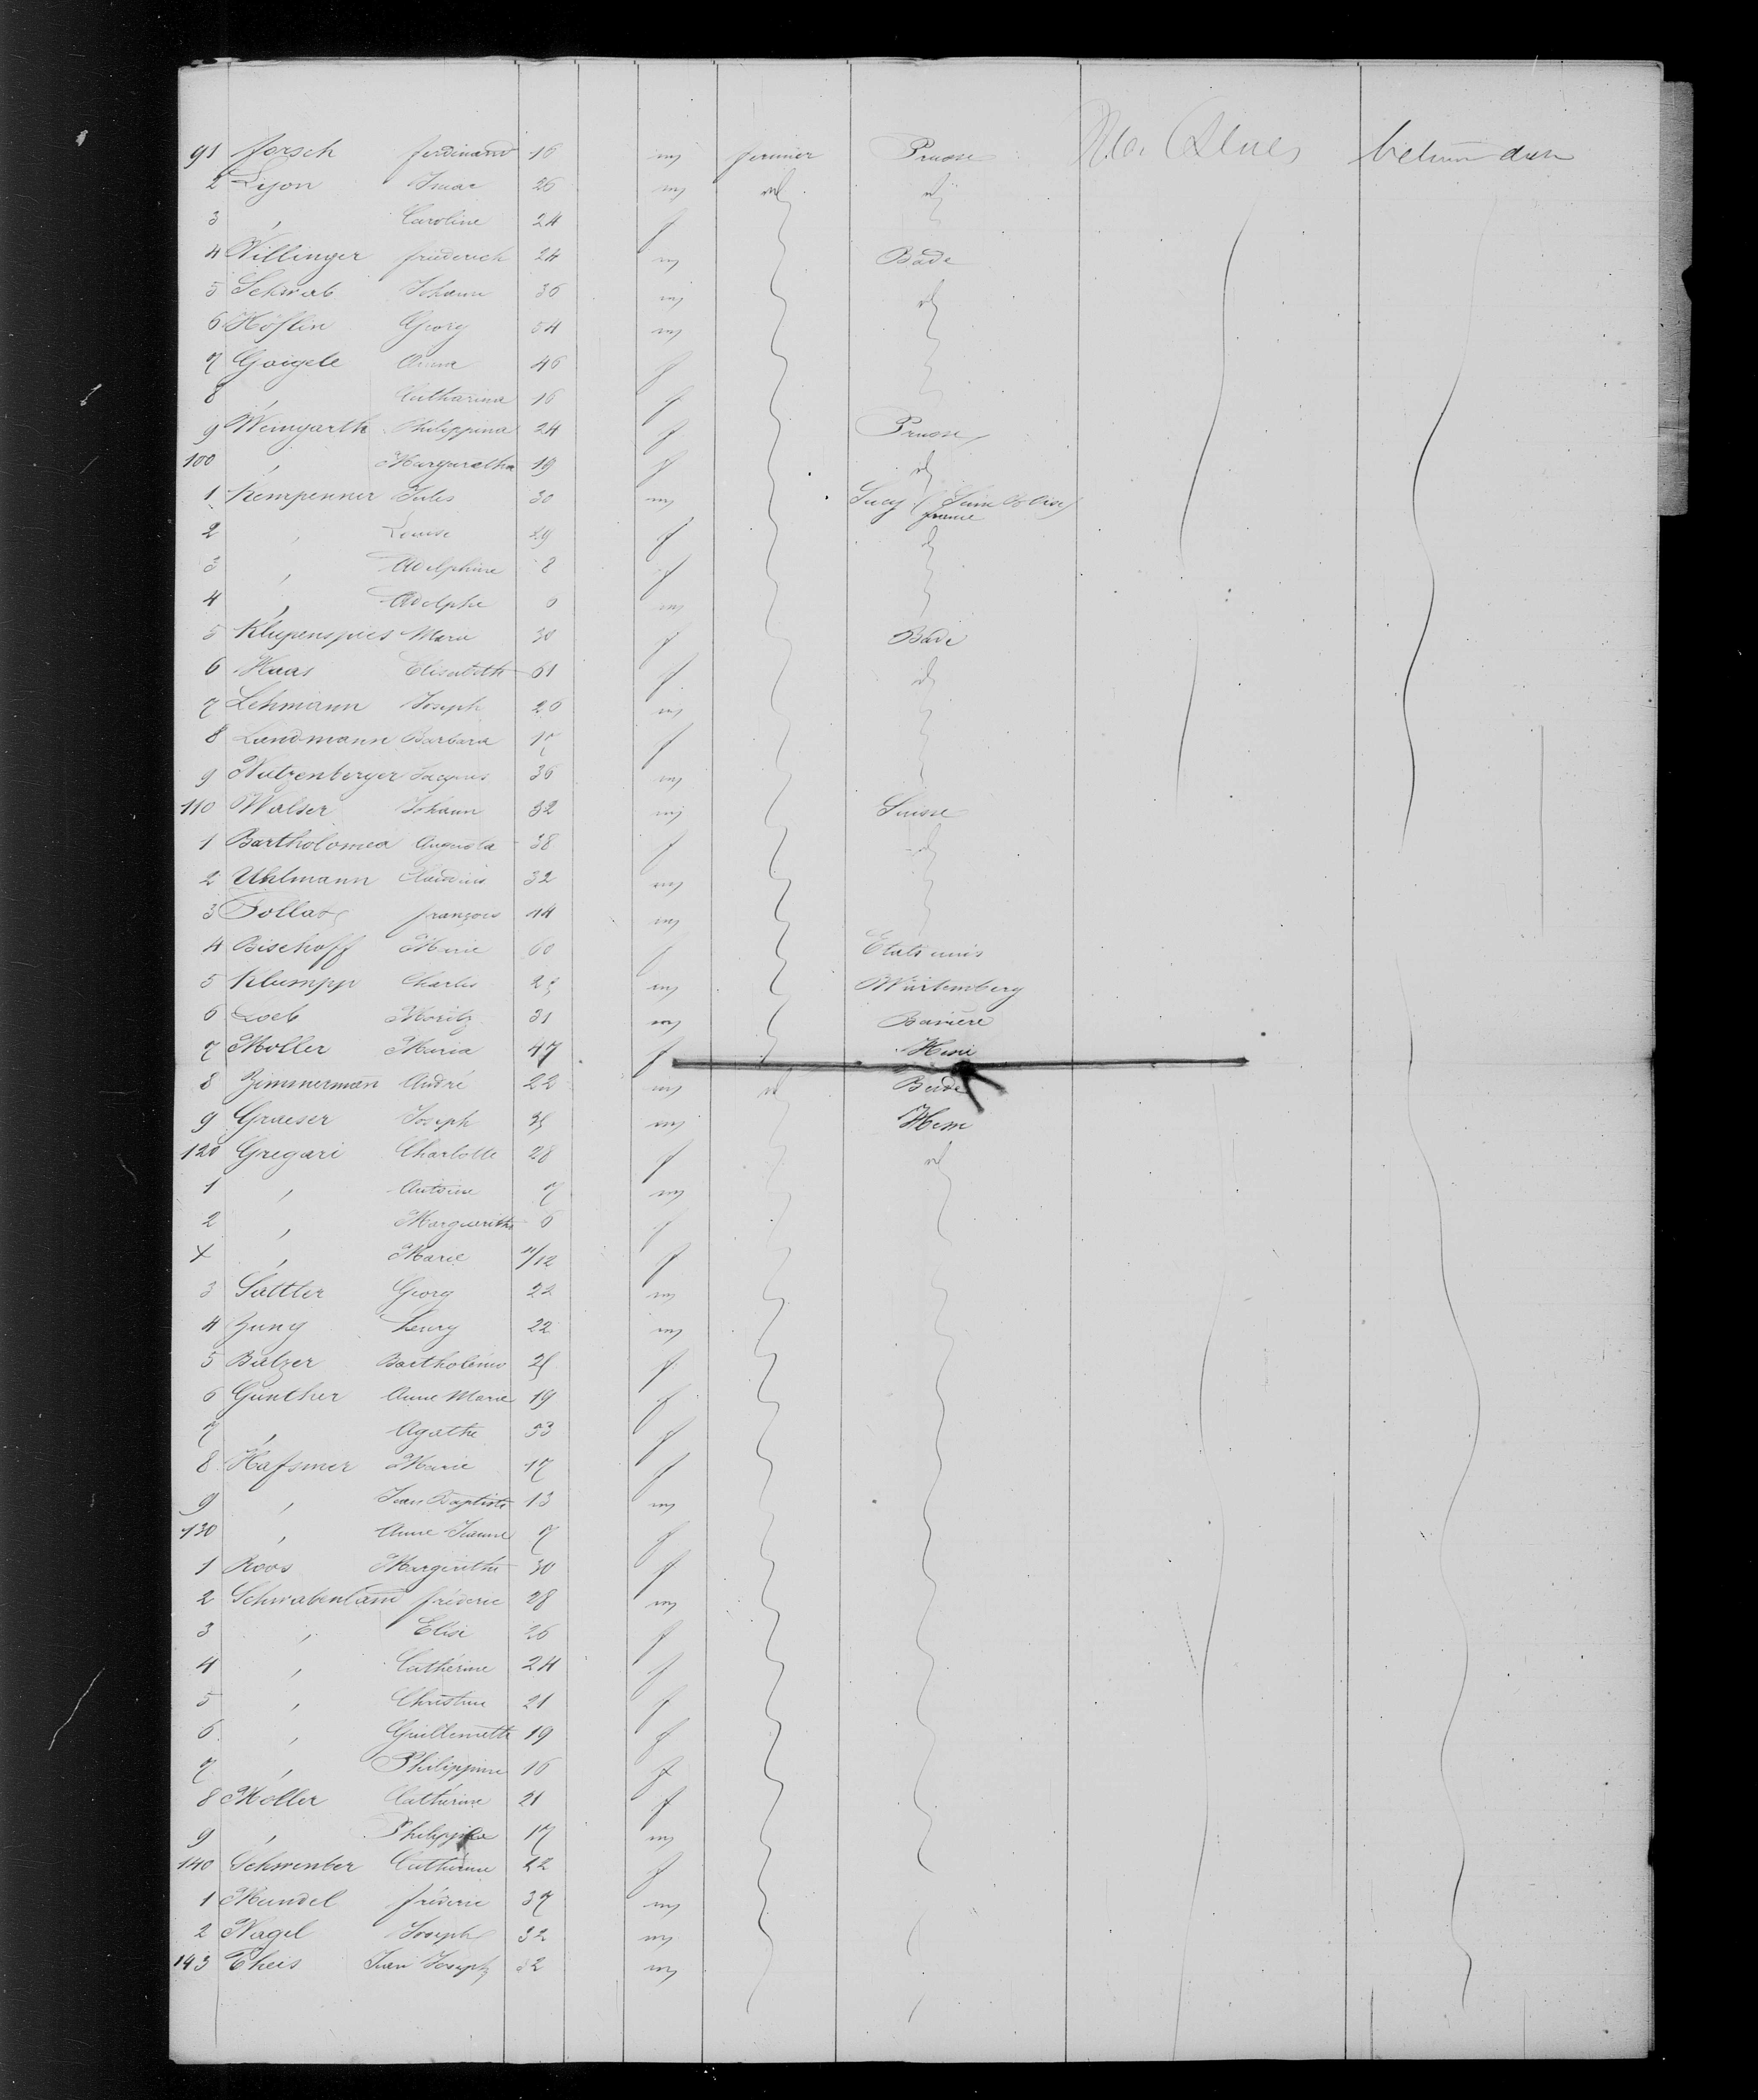 91 forsch ferdinand 16 m fermier Prusse U.S. between deck
2 Lyon Isaac 26 m id id
3 " Caroline 24 f
4 Willinger friederich 24 m Bade
5 Schwab Johann 36 m id
6 Höflin Georg 54 m
7 Goigele Anna 46 f
8 " Catharina 16 f
9 Weingarth Philippina 24 f Prusse
100 " Margaretha 19 f id
1 Kempenner Jules 30 m Sucy (Seine & Oise) france
2 " Louise 29 f id
3 " Adelphine 2 f
4 " Adolphe 0 m
5 Klupenspies Maria 30 f Bade
6 Haas Elisabeth 61 f id
7 Lehmann Joseph 26 m
8 Landmann Barbara 17 f
9 Nutzenberger Jacques 36 m
110 Walser Johann 32 m Suisse
1 Bartholomea 38 f id
2 Uhlmann Claudius 32 m
3 françois 14 m
4 Bischoff Marie 60 f Etats unis
5 Klumpp Charles 25 m Würtemberg
6 Loeb Moritz 31 m Bavière
7 Moller Maria 47 f Hesse
8 Zimmermann André 22 m id Bade
9 Graeser Joseph 35 m Hesse
120 Gregari Charlotte 28 f id
1 " Antoine 7 m
2 " Marguerithe 6 f
x " Marie 11/12 f
3 Sattler Georg 22 m
4 Jung henry 22 m
5 Balzer Bartholémio 25 f
6 Gunther Anne Marie 19 f
7 " Agathe 53 f
8 Hafsmer Marie 17 f
9 " Jean Baptiste 13 m
130 " Anne Jeanne 7 f
1 Roos Marguerithe 30 f
2 Schwabenland fréderic 28 m
3 " Elise 26 f
4 " Cathérine 24 f
5 " Christine 21 f
6 " Guillemette 19 f
7 " Philippine 16 f
8 Möller Cathérine 21 f
9 " 17 m
140 Schwenber Catherine 22 f
1 Mundel fréderic 37 m
2 Nagel Joseph 32 m
143 Theis Jean Joseph 32 m